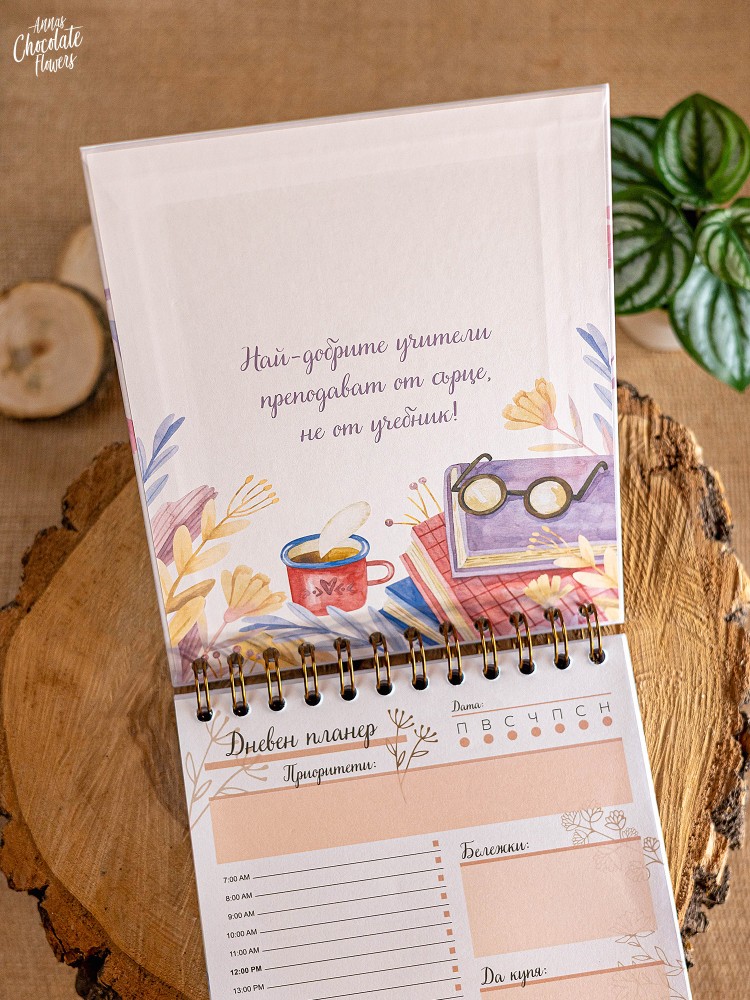 Annas
Chocolate
Flowers
Най-добрите учители
преподават от сърце,
не от учебник!
Дневен планер
Дата:
П В С Ч П С Н
Приоритети:
7:00 AM
8:00 AM
9:00 AM
10:00 AM
11:00 AM
12:00 PM
13:00 PM
Бележки:
Да купя: